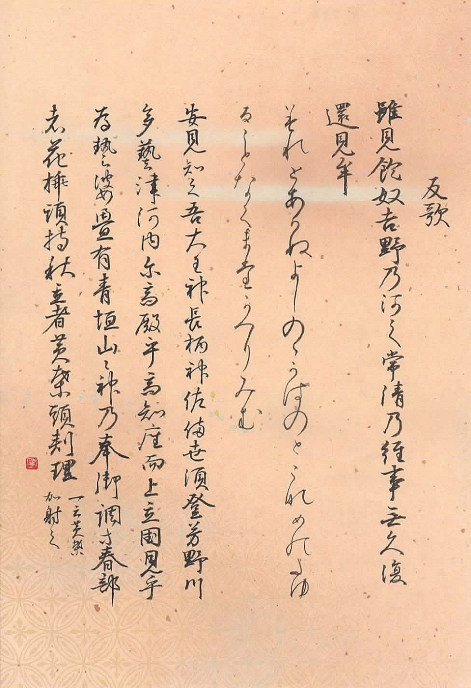 反歌
雖見飽奴吉野乃河之常滑乃絶事無久復
還見牟
みれどあかぬよしのゝかはのとこなめのたゆ
ることなくまたかへりみむ
安見知之吾大王神長柄神佐備世須登芳野川
多藝津河内尓高殿乎高知座而上立國見乎
為勢婆疊有青垣山ゝ神乃奉御調等春部
者花挿頭持秋立者黄葉頭刺理 一云黄葉
加射之